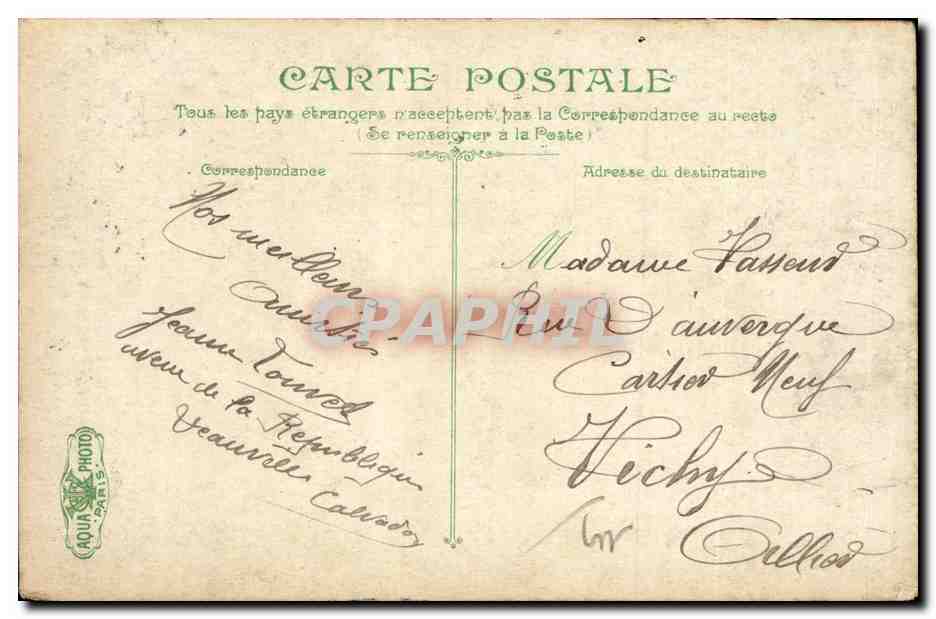 CARTE POSTALE
Tous les pays étrangers n'acceptent pas la Correspondance au recto
(Se renseigner à la Poste)
Correspondance
Adresse du destinataire
Nos meilleur
amities
Jeanne
aveue de la Republique
Deauville Calvados
Madame
Rue D'auvergne
Cartier Neuf
Vichy
Allier
CPAPHIL
AQUA PHOTO
PARIS